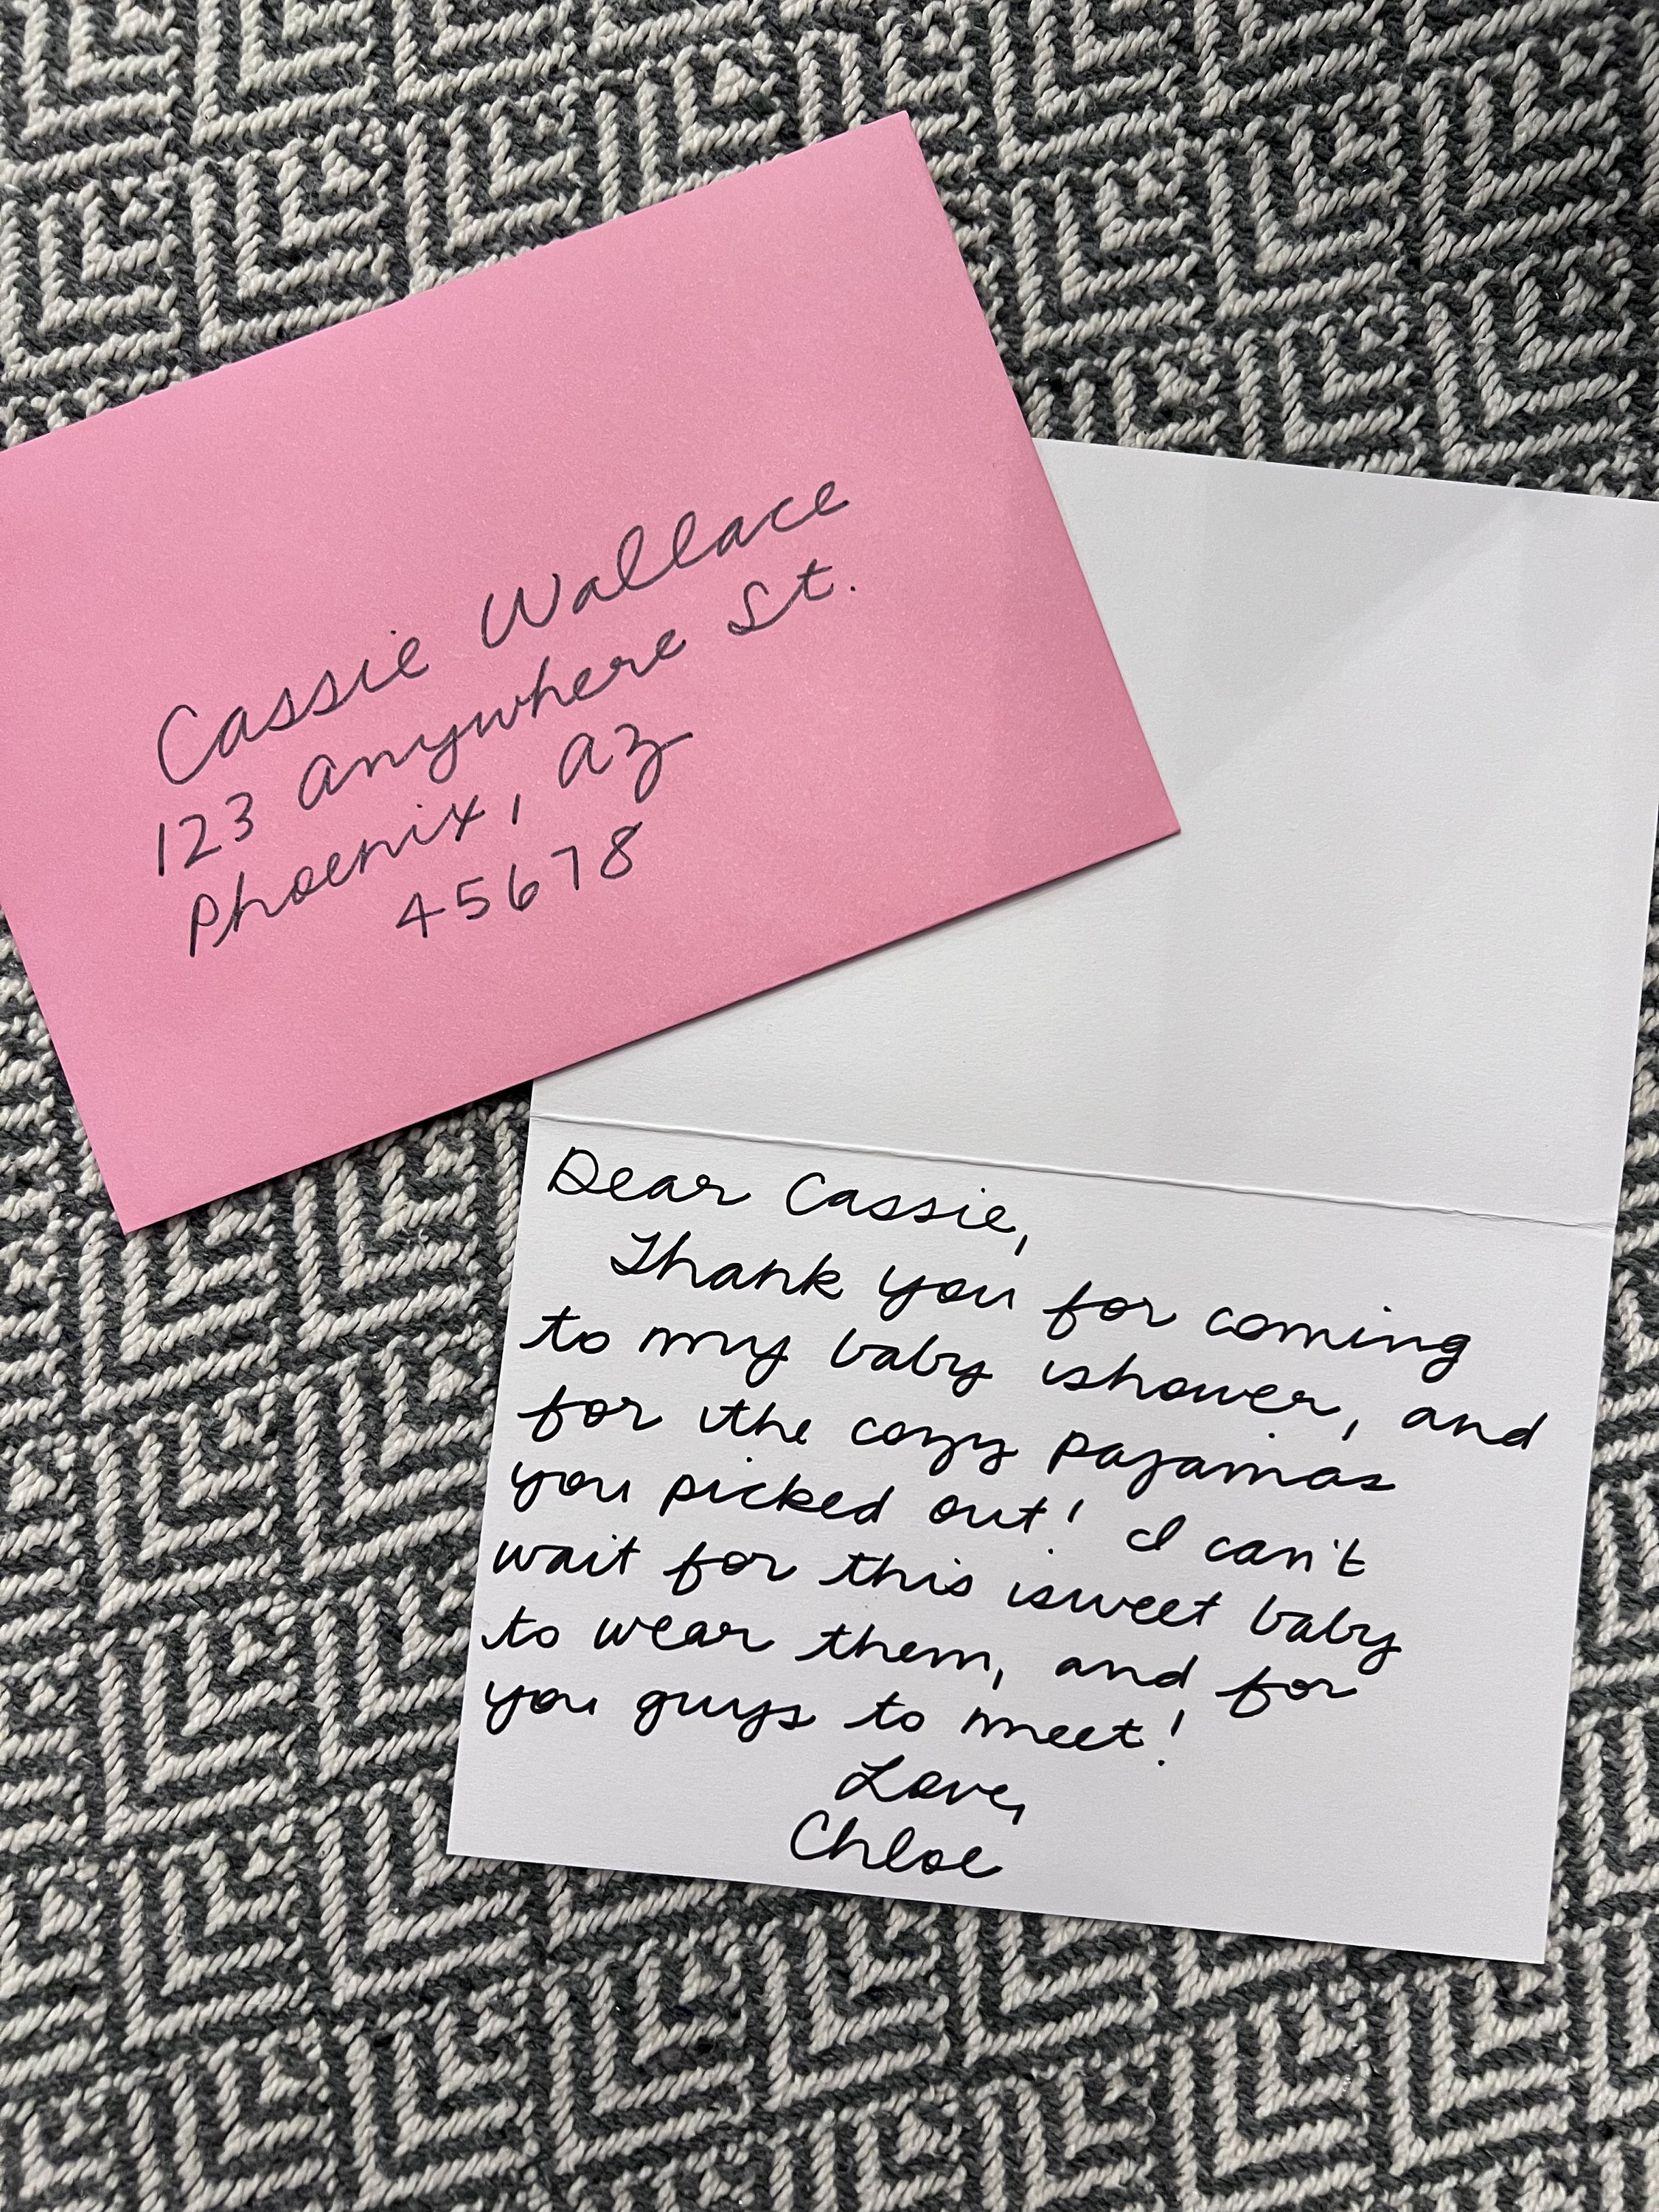 Cassie Wallace
123 Anywhere St.
Phoenix, AZ
45678
Dear Cassie,
Thank you for coming
to my baby shower, and
for the cozy pajamas
you picked out! I can't
wait for this sweet baby
to wear them, and for
you guys to meet!
Love,
Chloe